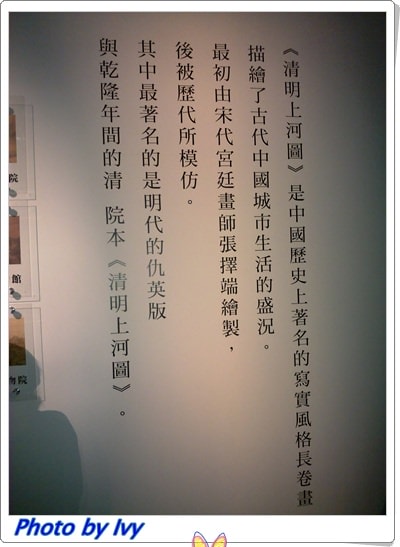 《清明上河圖》是中國歷史上著名的寫實風格長卷畫
描繪了古代中國城市生活的盛況。
最初由宋代宮廷畫師張擇端繪製，
後被歷代所模仿。
其中最著名的是明代的仇英版
與乾隆年間的清 院本《清明上河圖》。
院
館
物院
Photo by Ivy